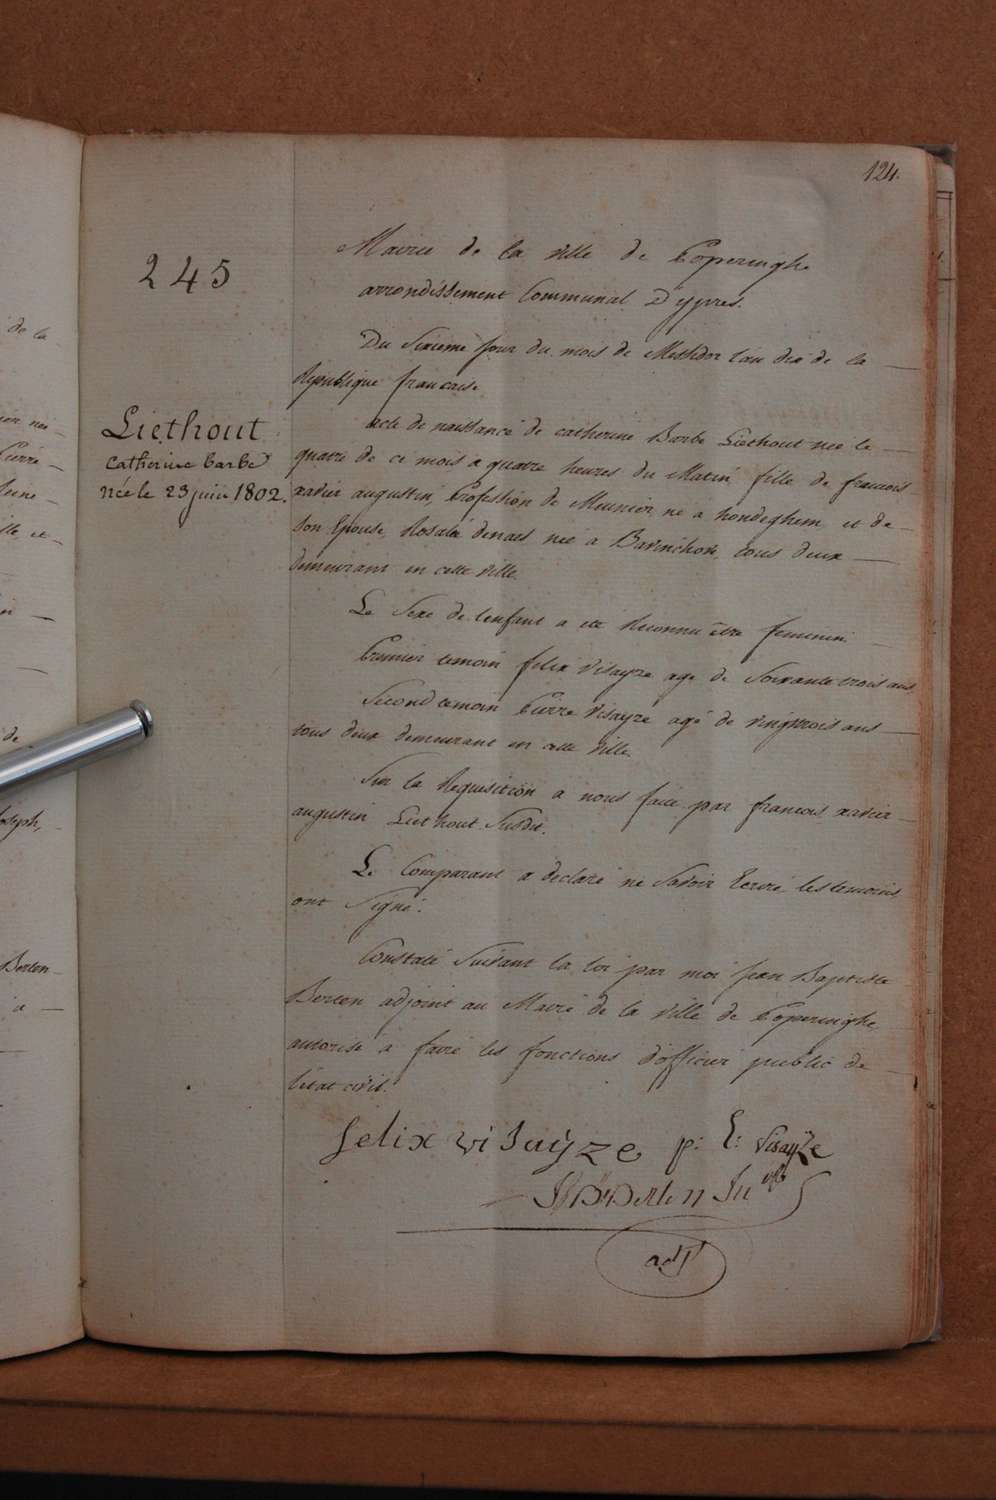 124.
245
Mairie de la ville de Poperinghe
arrondissement Communal D'ypres.
Du Sixieme jour du mois de Messidor l'an dix de la
Republique francaise
Liethout
Catherine barbe
Née le 23 juin 1802.
acte de naissance de catherine Barbe Liethout née le
quatre de ce mois a quatre heures du Matin, fille de francois
xavier augustin, Profession de Meunier, né a hondeghem, et de
Son Epouse, Rosalie denaes née a Bavinchove, tous deux
demeurant en cette ville.
Le Sexe de l'enfant a été Reconnu être feminin
Premier temoin felix visayze agé de Soixante trois ans
Second temoin Pierre visayze agé de vingttrois ans
tous deux demeurant en cette ville.
Sur la Requisition a nous faite par francois xavier
augustin Liethout Susdit.
Le Comparant a declaré ne Savoir Ecrire les temoins
ont Signé.
Constaté Suivant la loi par moi jean Baptiste
Berten adjoint au Maire de la ville de Poperinghe,
autorisé a faire les fonctions d'officier public de
l'état civil.
felix visayze p: L: Visayze
JB Berten
adjt
de la
Pierre
et
de
Joseph,
Berten
a